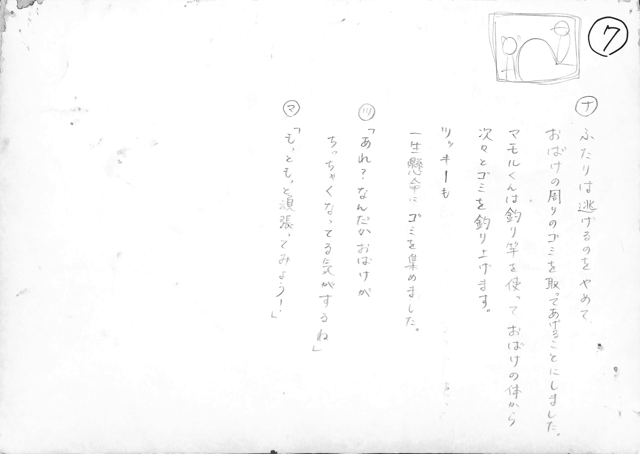 ⑦
㋤ ふたりは逃げるのをやめて
おばけの周りのゴミを取ってあげることにしました。
マモルくんは釣り竿を使っておばけの体から
次々とゴミを釣り上げます。
ツッキーも
一生懸命にゴミを集めました。
㋡「あれ?なんだかおばけが
ちっちゃくなってる気がするね」
㋮「もっともっと頑張ってみよう!」